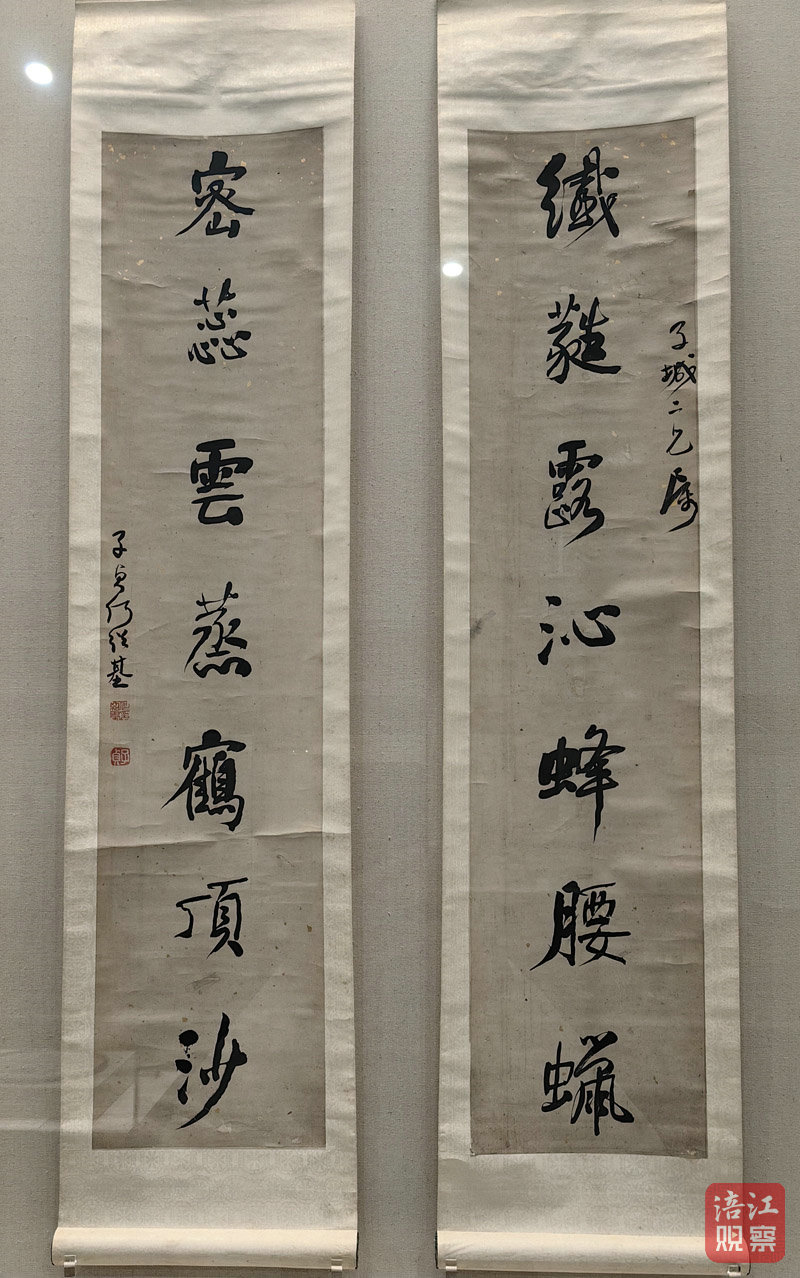 子城二兄屬
纖蕤露沁蜂腰蠟
密蕊雲蒸鶴頂沙
子貞何紹基
子貞
涪江
观察